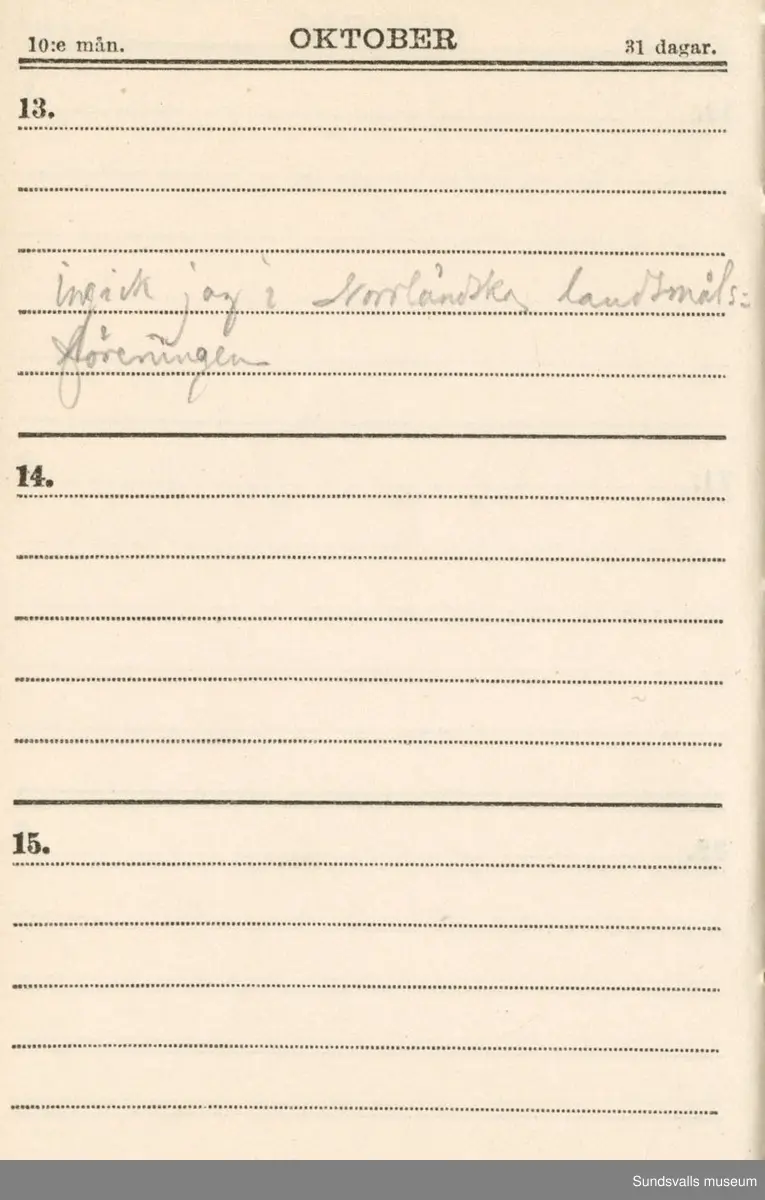 10:e mån. OKTOBER 31 dagar.
13.
ingick jag i Norrländska landsmåls=
föreningen
14.
15.
Sundsvalls museum